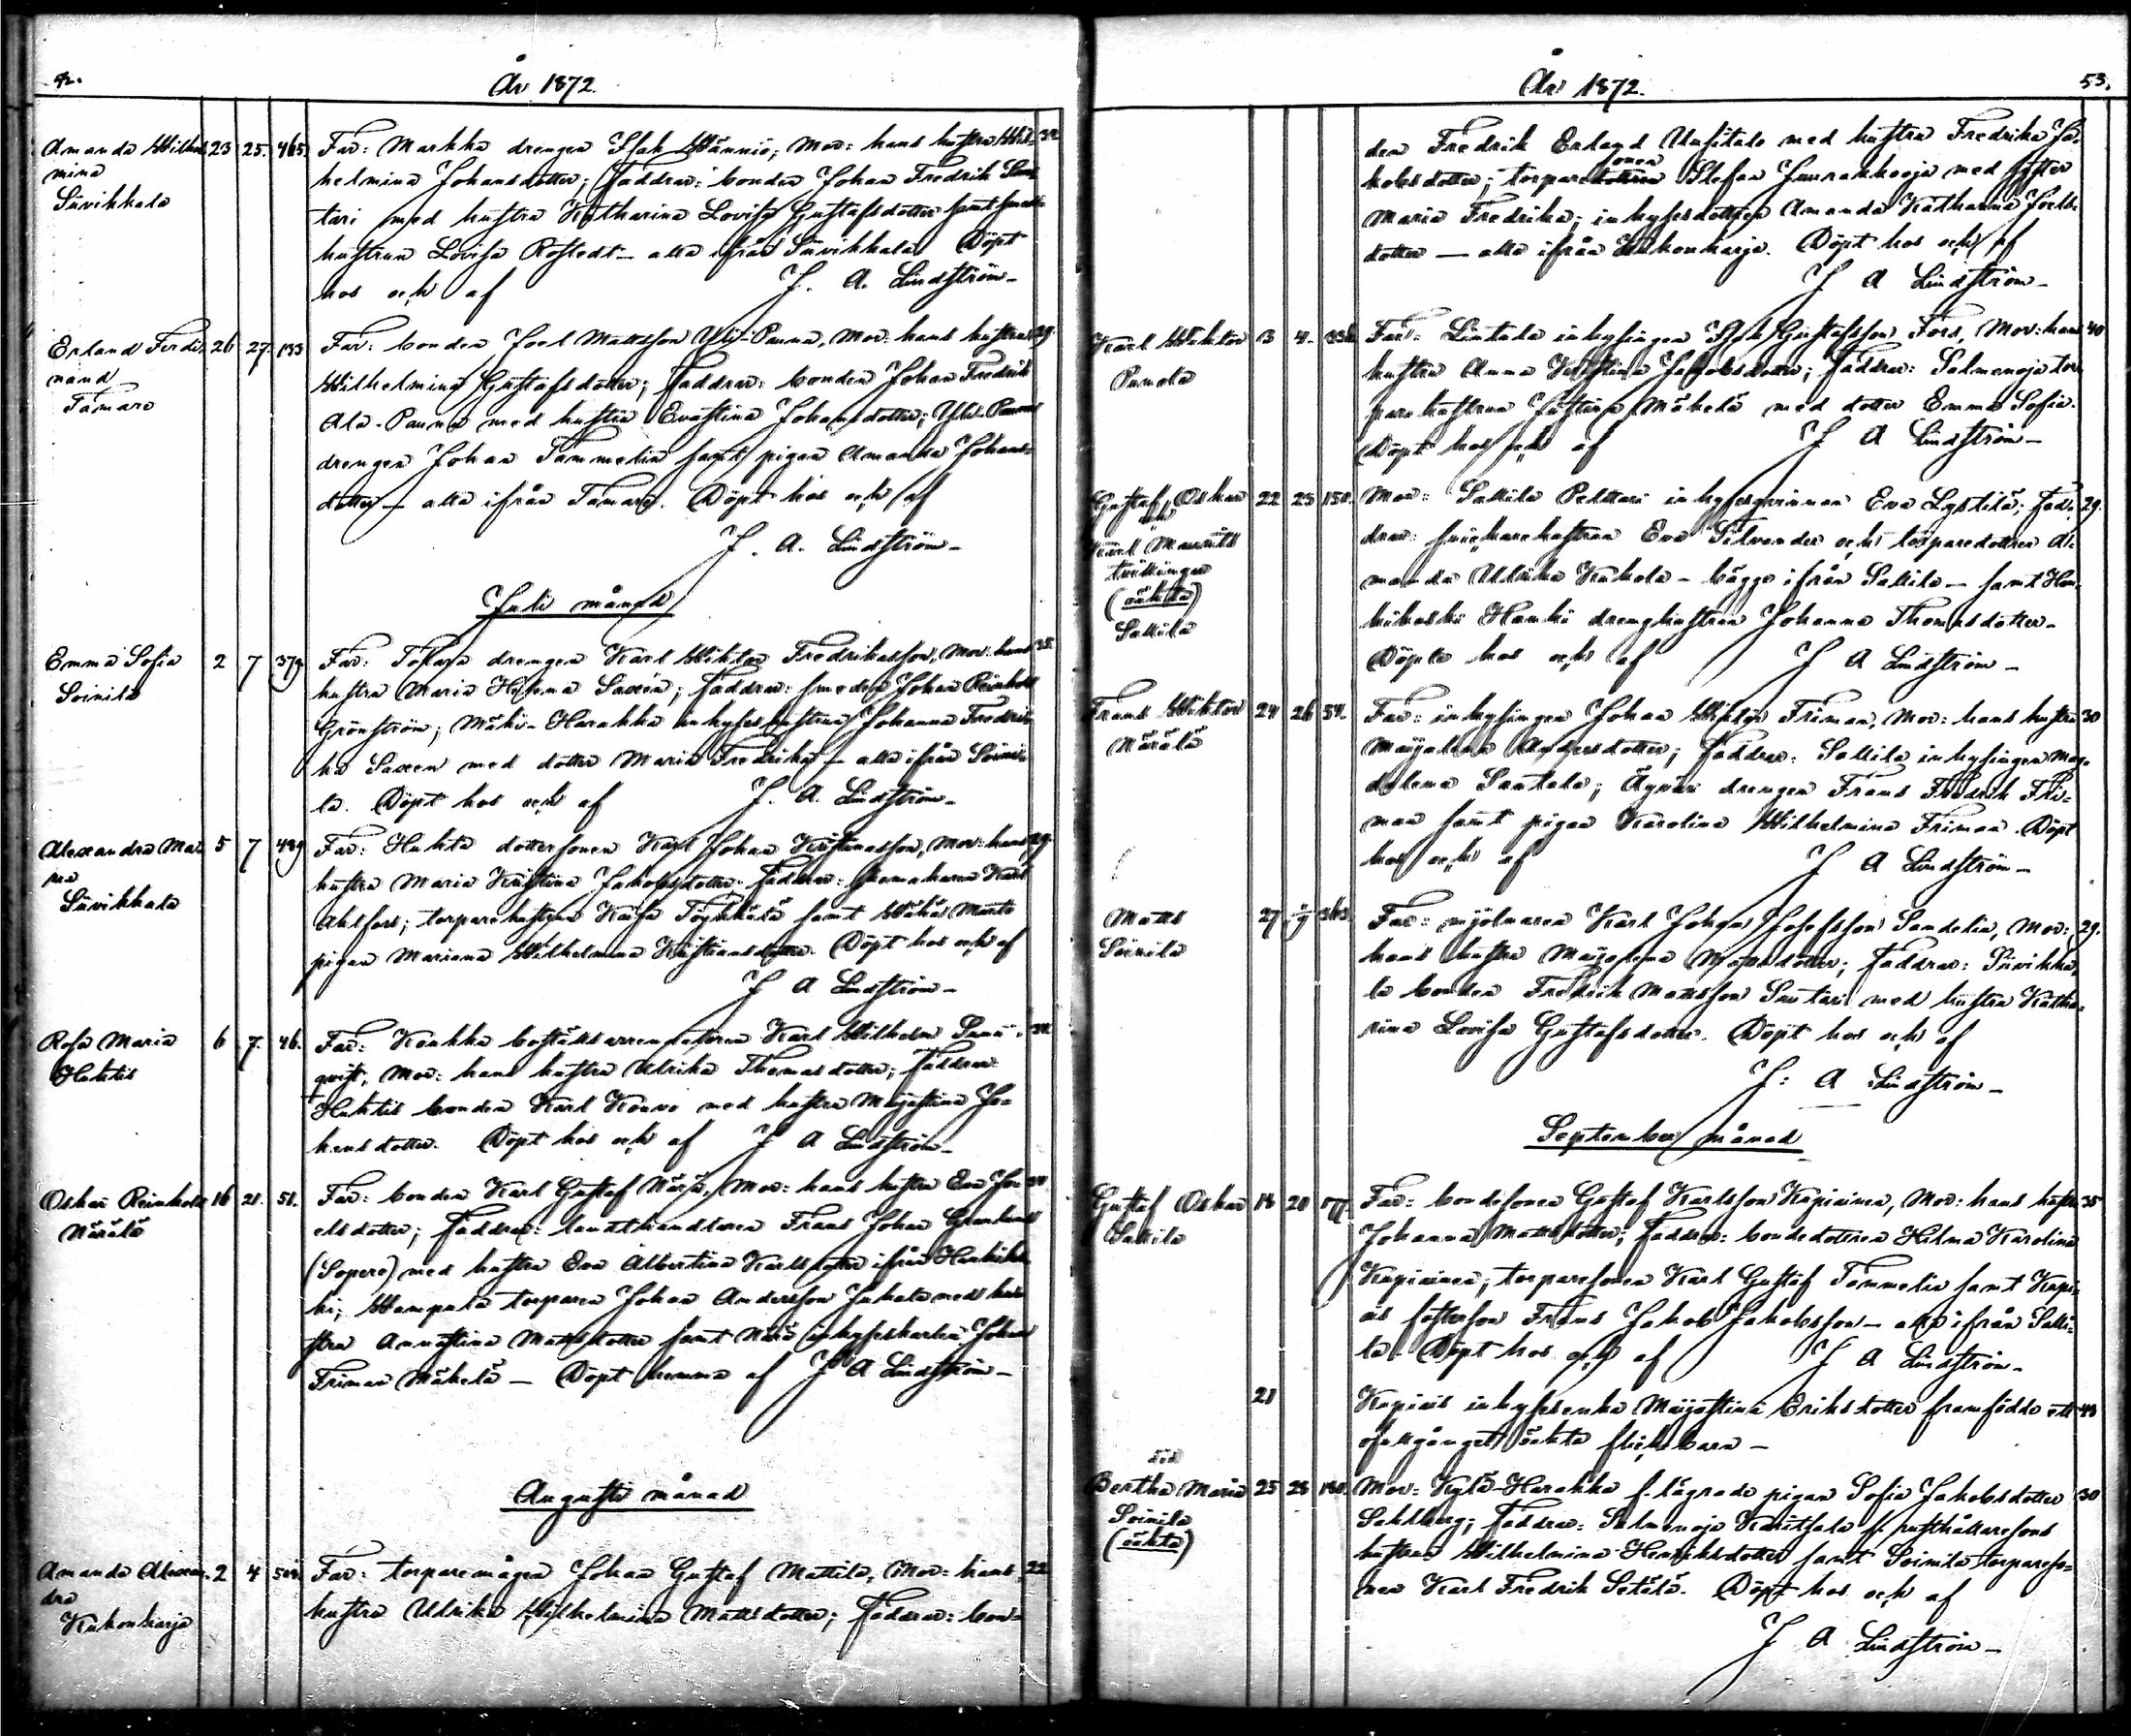 52.
År 1872.
Amanda Wilhel-
mina
Siivikkala
23 25. 465.
Far: Markka drengen Isak Wännio; Mor: hans hustru Wil- 32
helmina Johansdotter; Faddrar: bonden Johan Fredrik San-
tari med hustru Katharina Lovisa Gustafsdotter samt
hustrun Lovisa Rostedt — alla ifrån Siivikkala. Döpt
hos och af J. A. Lindström —
Erland Ferdi-
nand
Tamare
26 27. 133
Far: bonden Joel Mattsson Yli-Panna, Mor: hans hustru 29.
Wilhelmina Gustafsdotter; Faddrar: bonden Johan Fredrik
Ala-Panna med hustru Evastina Johansdotter; Yli-Pannas
drengen Johan Tammelin samt pigan Amanda Johans-
dotter — alla ifrån Tamare. Döpt hos och af
J. A. Lindström —
Juli månad
Emma Sofia
Soinila
2 7 379
Far: drengen Karl Wiktor Fredriksson, Mor: hans 35.
hustru Maria Helena Saxén; Faddrar: smeden Johan Reinhold
Grönström; Mäki-Harakka inhyseshustrun Johanna Fredri-
ka Saxen med dotter Maria Fredrika — alla ifrån Soini-
la. Döpt hos och af J. A. Lindström —
Alexandra Ma-
ria
Siivikkala
5 7 489
Far: Huhta dottersonen Karl Johan Kristiansson, Mor: hans 29.
hustru Maria Kristina Jakobsdotter; Faddrar: skomakaren Karl
Ahlfors; torparehustrun Kaisa samt
pigan Mariana Wilhelmina Kristiansdotter. Döpt hos och af
J A Lindström —
Rosa Maria
Huhtis
6 7. 46.
Far: Koukka boställsarrendatorn Karl Wilhelm 32
qvist, Mor: hans hustru Ulrika Thomasdotter; Faddrar:
Huhtis bonden Karl Kouvo med hustru Majastina Jo-
hansdotter. Döpt hos och af J A Lindström —
Oskar Reinhold
Närälä
16 21. 51.
Far: bonden Karl Gustaf Närjä, Mor: hans hustru Eva Jo-
elsdotter; Faddrar: landthandlaren Frans Johan Granlund
(Sopero) med hustru Eva Albertina Karlsdotter ifrån
ki; Wampula torparen Johan Andersson Juhala med hu-
stru Annastina Mattsdotter samt inhyseskarlen Johan
Friman Mäkelä — Döpt hemma af J A Lindström —
Augusti månad
Amanda Alexan-
dra
Kukonharja
2 4 504
Far: torparemågen Johan Gustaf Mattila, Mor: hans 22
hustru Ulrika Wilhelmina Mattsdotter; Faddrar: bon-
År 1872.
53.
den Fredrik Erland Uusitalo med hustru Fredrika Ja-
kobsdotter; torparesonen Stefan med syster
Maria Fredrika; inhysesdottren Amanda Katharina Joels-
dotter — alla ifrån Kukonharja. Döpt hos och af
J A Lindström —
Karl Wiktor
Punola
3 4.
Far: Lintula inhysingen Isak Gustafsson Fors, Mor: hans 40
hustru Anna Kristina Jakobsdotter; Faddrar: Salmenoja tor-
parehustrun Justina Mäkelä med dotter Emma Sofia.
Döpt hos och af J A Lindström —
Gustaf Oskar
och
Karl Maurits
tvillingar
(oäkta)
Sallila
22 25 150.
Mor: Sallila Pelttari inhyseqvinnan Eva Lystilä; Fad- 29.
drar: snickarehustrun Eva Silvander och torparedottren A-
manda Ulrika Kukola — bägge ifrån Sallila — samt Hon-
kikoski Hanki drenghustrun Johanna Thomasdotter.
Döpte hos och af J A Lindström —
Frans Wiktor
Närälä
24 26 54.
Far: inhysingen Johan Wiktor Friman, Mor: hans hustru 30
Majalena Andersdotter; Faddrar: Sallila inhysingen Mag-
dalena Santala; Äyväri drengen Frans Fredrik Fri-
man samt pigan Karolina Wilhelmina Friman. Döpt
hos och af J A Lindström —
Matts
Soinila
27
Far: mjölnaren Karl Johan Josefsson Sandelin, Mor: 29.
hans hustru Majalena Mattsdotter; Faddrar: Siivikka-
la bonden Fredrik Mattsson Santari med hustru Katha-
rina Lovisa Gustafsdotter. Döpt hos och af
J: A Lindström —
September månad
Gustaf Oskar
Sallila
18 20 177.
Far: bondesonen Gustaf Karlsson Kupiainen, Mor: hans hustru 35
Johanna Mattsdotter; Faddrar: bondedottren Hilma Karolina
Kupiainen; torparesonen Karl Gustaf Tammelin samt Kupi-
äs fosterson Frans Jakob Jakobsson — alla ifrån Salli-
la. Döpt hos och af J A Lindström —
21
Kupiais inhysesenka Majastina Eriksdotter framfödde ett 43
ofullgånget oäkta flickebarn —
död
Bertha Maria
Soinila
(oäkta)
25 28 180.
Mor: Kylä-Harakka f. lägrade pigan Sofia Jakobsdotter 30
Sahlberg; Faddrar: Salmenoja f. rusthållaresons
hustrun Wilhelmina Henriksdotter samt Soinila torpareso-
nen Karl Fredrik Setälä. Döpt hos och af
J A Lindström —